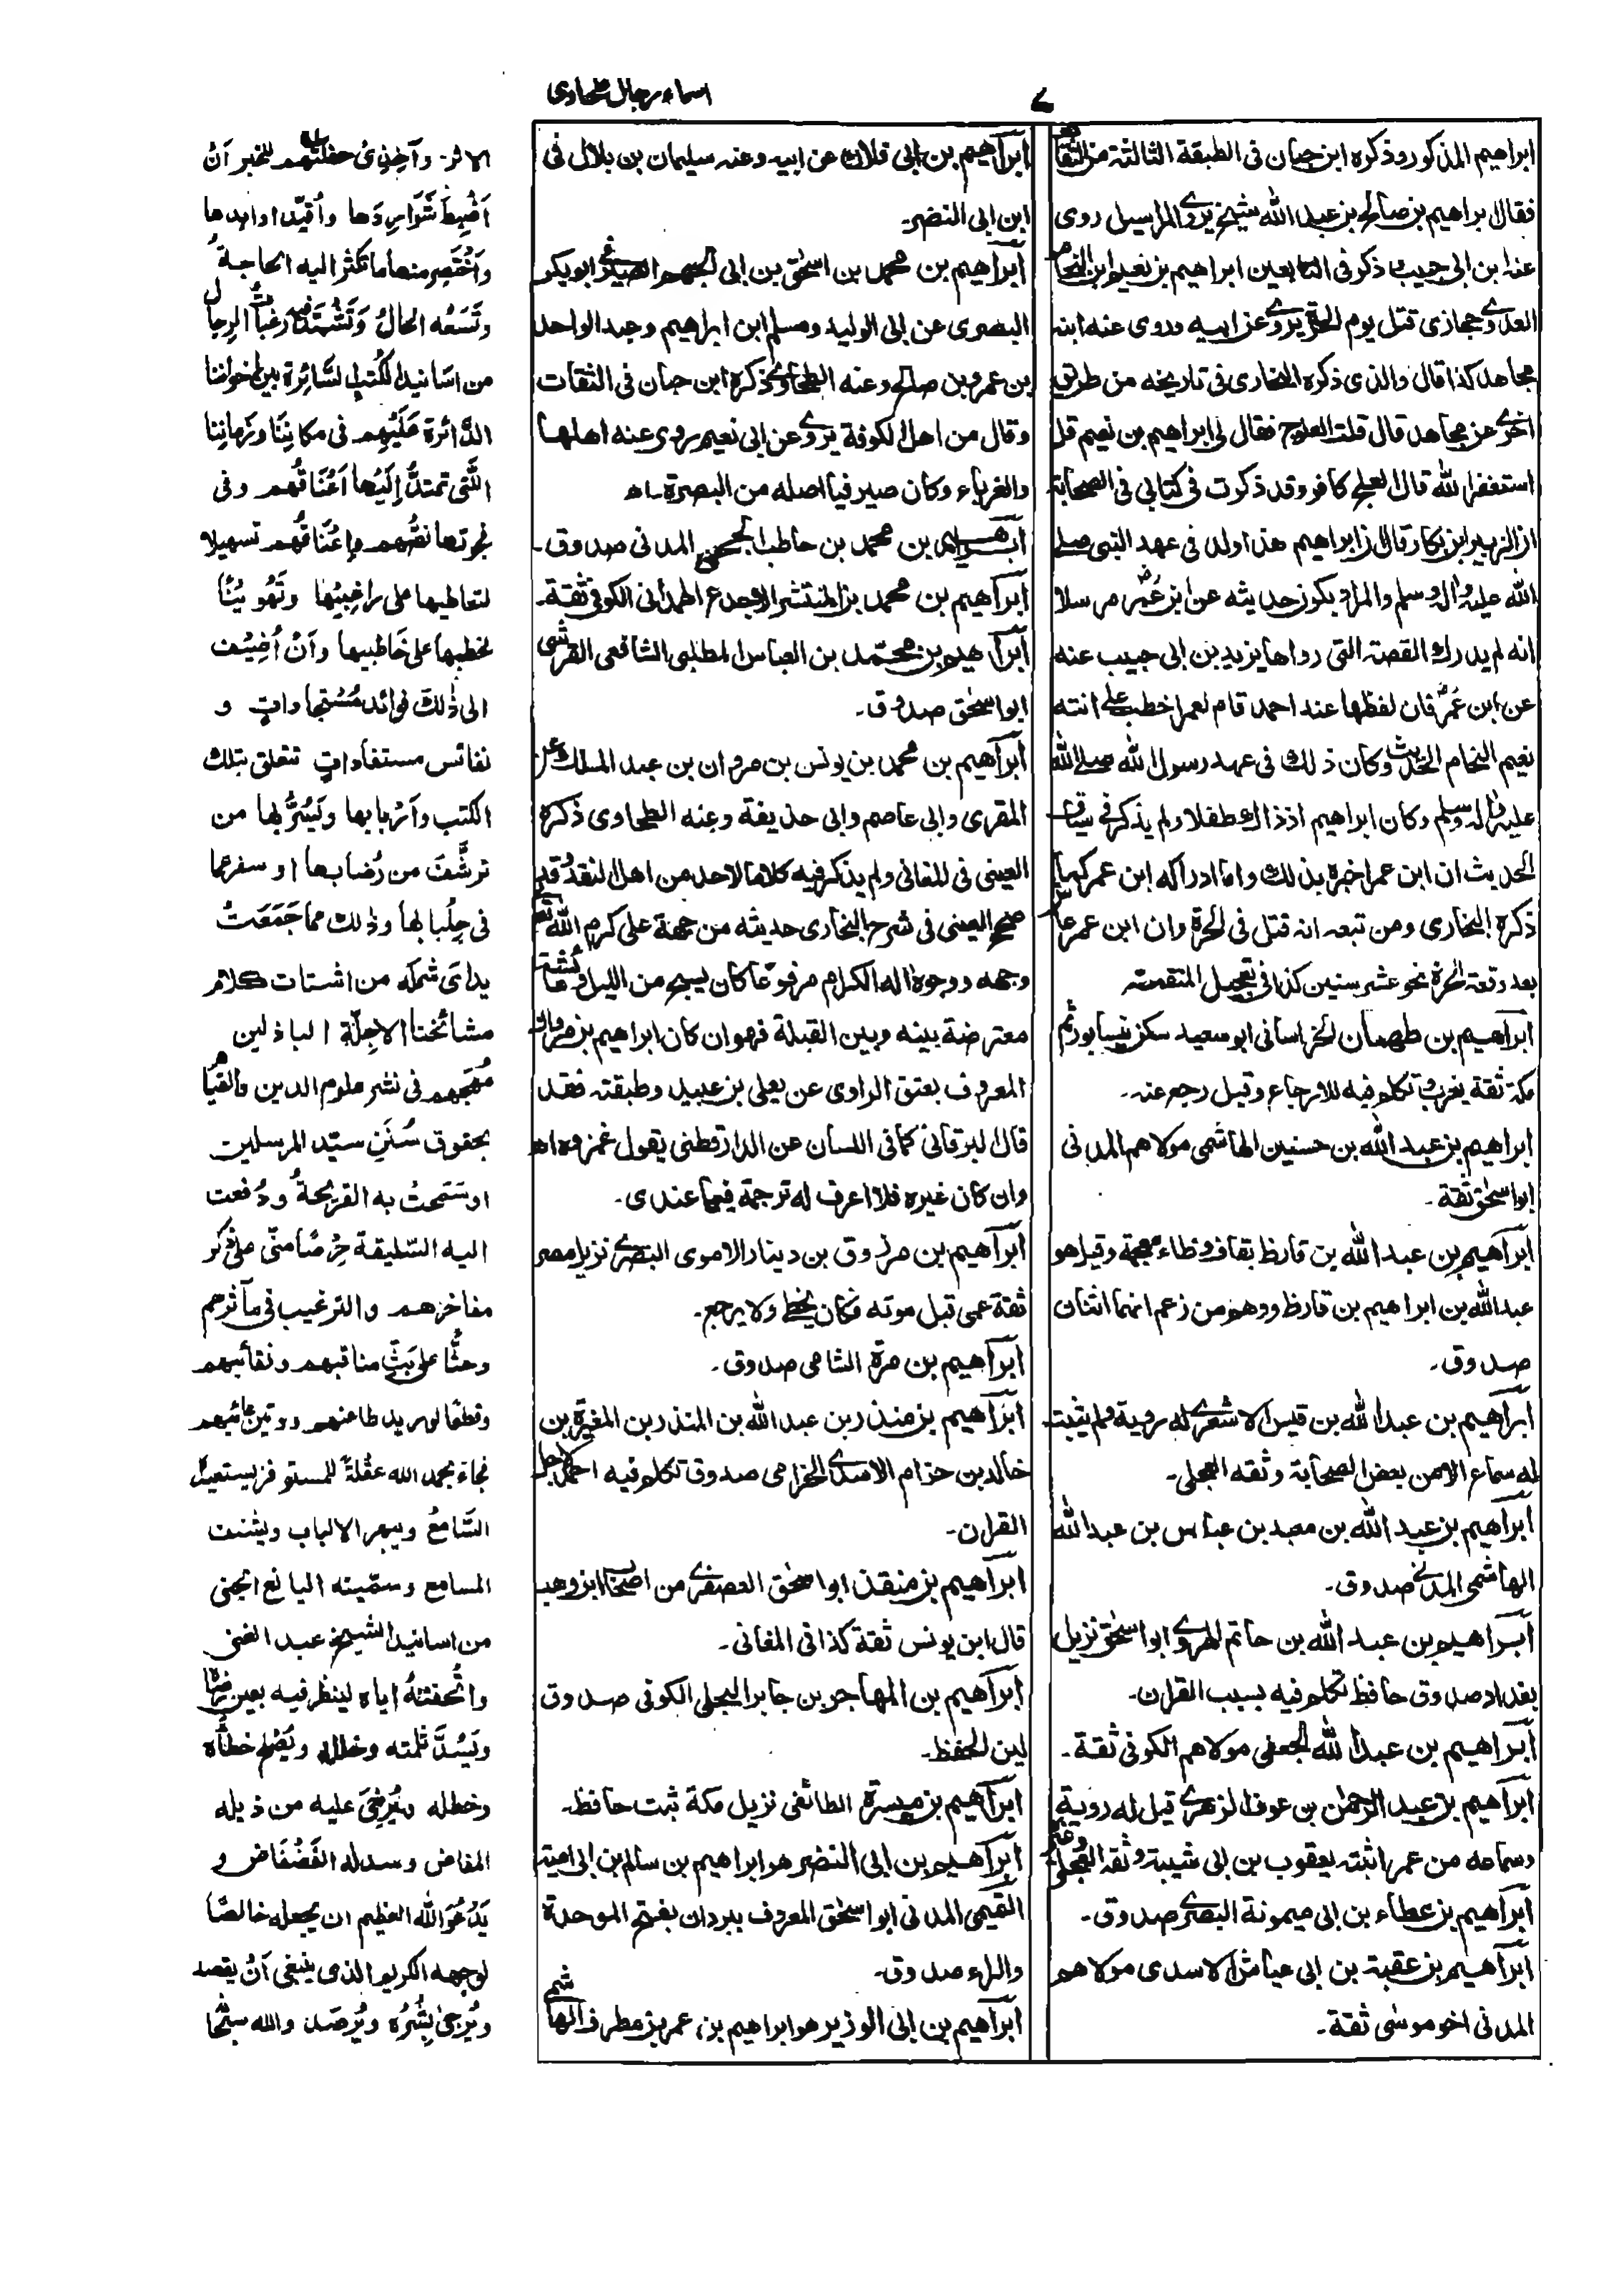 اسماء رجال طحاوی
ابراهيم المذكور وذكره ابن حبان فى الطبقة الثالثة من الثقات
فقال ابراهيم بن صالح بن عبد الله شيخ يروى المراسيل روى
عنه ابن ابى حبيب وذكر فى التابعين ابراهيم بن نعيم ابن النحام
العدوى حجازى قتل يوم الحرة يروى عن ابيه وروى عنه ابنه
مجاهد كذا قال والذى ذكره البخارى فى تاريخه من طريق
اخرى عن مجاهد قال قلت العلوج فقال لى ابراهيم بن نعيم قل
استغفر الله قال العلج كافر وقد ذكرت فى كتابى فى الصحابة
ان الزبير ابن بكار قال ان ابراهيم هذا ولد فى عهد النبى صلى
الله عليه واله وسلم والمراد بكون حديثه عن ابن عمر مرسلا
انه لم يدرك القصة التى رواها يزيد بن ابى حبيب عنه
عن ابن عمر فان لفظها عند احمد قام لعمر اخطب على انته
نعيم النحام الحديث وكان ذلك فى عهد رسول الله صلى الله
عليه واله وسلم وكان ابراهيم اذذاك طفلا ولم يذكر فى سياق
الحديث ان ابن عمر اخبره بذلك واما ادراكه ابن عمر كما
ذكره البخارى ومن تبعه انه قتل فى الحرة وان ابن عمر عاش
بعد وقعة الحرة نحو عشر سنين كذا فى تعجيل المنفعة
ابراهيم بن طهمان الخراسانى ابو سعيد سكن نيسابور ثم
مكة ثقة يغرب وتكلم فيه للارجاء وقيل رجع عنه۔
ابراهيم بن عبد الله بن حسنين الهاشمى مولاهم المدنى
ابو اسحٰق ثقة۔
ابراهيم بن عبد الله بن قارظ بقاف وظاء معجمة وقيل هو
عبد الله بن ابراهيم بن قارظ ووهم من زعم انهما اثنان
صدوق۔
ابراهيم بن عبد الله بن قيس الاشعرى له روية ولم يثبت
له سماع الا من بعض الصحابة وثقه العجلى۔
ابراهيم بن عبد الله بن معبد بن عباس بن عبد الله
الهاشمى المدنى صدوق۔
ابراهيم بن عبد الله بن حاتم الهروى ابو اسحٰق نزيل
بغداد صدوق حافظ تكلم فيه بسبب القران۔
ابراهيم بن عبد الله الجعفى مولاهم الكوفى ثقة۔
ابراهيم بن عبد الرحمٰن بن عوف الزهرى قيل له روية
وسماعه من عمر اثبته يعقوب بن ابى شيبة وثقه العجلى وغيره
ابراهيم بن عطاء بن ابى ميمونة البصرى صدوق۔
ابراهيم بن عقبة بن ابى عياش الاسدى مولاهم
المدنى اخو موسى ثقة۔
ابراهيم بن ابى فلان عن ابيه وعنه سليمان بن بلال فى
ابن ابى النضر۔
ابراهيم بن محمد بن اسحٰق بن ابى الجهم الصيرفى ابو بكر
البصرى عن ابى الوليد ومسلم ابن ابراهيم وعبد الواحد
بن عمرو بن صالح وعنه الطحاوى ذكره ابن حبان فى الثقات
وقال من اهل الكوفة يروى عن ابى نعيم روى عنه اهلها
والغرباء وكان صيرفيا اصله من البصرة۔ اه
ابراهيم بن محمد بن حاطب الجمحى المدنى صدوق۔
ابراهيم بن محمد بن المنتشر الاجدع الهمدانى الكوفى ثقة۔
ابراهيم بن محمد بن العباس المطلبى الشافعى القرشى
ابو اسحٰق صدوق۔
ابراهيم بن محمد بن يونس بن مروان بن عبد الملك عن
المقرى وابى عاصم وابى حذيفة وعنه الطحاوى ذكره
العينى فى المغانى ولم يذكر فيه كلاما لاحد من اهل النقد وقد
صحح العينى فى شرح البخارى حديثه من جهة على كرم الله تعالى
وجهه ووجوه اله الكرام مرفوعا كان يسبح من الليل وعائشة
معترضة بينه وبين القبلة فهو ان كان ابراهيم بن مروان
المعروف بعتق الراوى عن يعلى بن عبيد وطبقته فقد
قال البرقانى كما فى اللسان عن الدارقطنى يقول غمزوه اه
وان كان غيره فلا اعرف له ترجمة فيما عندى۔
ابراهيم بن مرزوق بن دينار الاموى البصرى نزيل مصر
ثقة عمى قبل موته فكان يخطى ولا يرجع۔
ابراهيم بن مرة الشامى صدوق۔
ابراهيم بن منذر بن عبد الله بن المنذر بن المغيرة بن
خالد بن حزام الاسدى الحزامى صدوق تكلم فيه احمد لاجل
القران۔
ابراهيم بن منقذ ابو اسحٰق العصفرى من اصحاب ابن وهب
قال ابن يونس ثقة كذا فى المغانى۔
ابراهيم بن المهاجر بن جابر البجلى الكوفى صدوق
لين الحفظ۔
ابراهيم بن ميسرة الطائفى نزيل مكة ثبت حافظ۔
ابراهيم بن ابى النضر هو ابراهيم بن سالم بن ابى امية
التيمى المدنى ابو اسحٰق المعروف ببردان بفتح الموحدة
والراء صدوق۔
ابراهيم بن ابى الوزير هو ابراهيم بن عمر بن مطرف الهاشمى
الاثر۔ حفلتهم للخبر اَنْ
اَضْبِطَ شَوَارِدَها واُقيّد اوابدها
واَختصر منها ما تكثر اليه الحاجةُ
وتَسَعُه الحالُ وَتَشْتَدُّ فيه رغباتُ الرجال
من اسانيد الكتب السائرة بين اخواننا
الدَّائرة عَلَيْهِم فى مكانِنَا وزمانِنا
الَّتى تمتدُّ اِلَيْها اَعْنَاقُهم وفى
نحوتها نصُّهم واِعْنَاقُهم تسهيلا
لتعاطيها على راغِبِيْها وتَهْوِيْنًا
لخطبها على خَاطبيها وَاَنْ اُضِيْفَ
الى ذٰلك فوائد مُسْتجاداتٍ و
نفائس مستفاداتٍ تتعلق بتلك
الكتب واَرْبابها ويَسُرُّ بها من
ترشَّفَ من رُضابها او سفرعما
فى جِلْبابها وذٰلك مما جَمَعَتْ
يداىَ شملَه من اشتات كلام
مشائخنا الاجِلّةِ الباذلين
مُهَجَهم فى نشر علوم الدين والقيام
بحقوق سُنَنِ سيّد المرسلين
او سَمَحتْ به القريحةُ ودُفعت
اليه السَّليقة حِرْصًا منّى على ذكر
مفاخرهم والترغيب فى مآثرهم
وحثًّا على بَثِّ مناقبهم ونقائبهم
وقطعًا لوريد طاعنهم ووتين عائبهم
فجاءَ بحمد الله عقلةً للمستوفز يستعيده
السَّامعُ ويبهر الالباب ويشنف
المسامع وسمّيته اليانع الجنى
من اسانيد الشيخ عبد الغنى
واتْحفتُهُ اياه لينظر فيه بعين
ويَسُدَّ ثلمته وخلله ويُصْلح خطأَه
وخطله ويُرْخِىَ عليه من ذيله
المفاض وسدله الفَضْفَاض و
يَدْعُوَ الله العظيم ان يجعله خالصًا
لوجهه الكريم الذى ينبغى اَنْ يقصد
ويُرْجىٰ بِشْرُه ويُرصَد والله سبحا